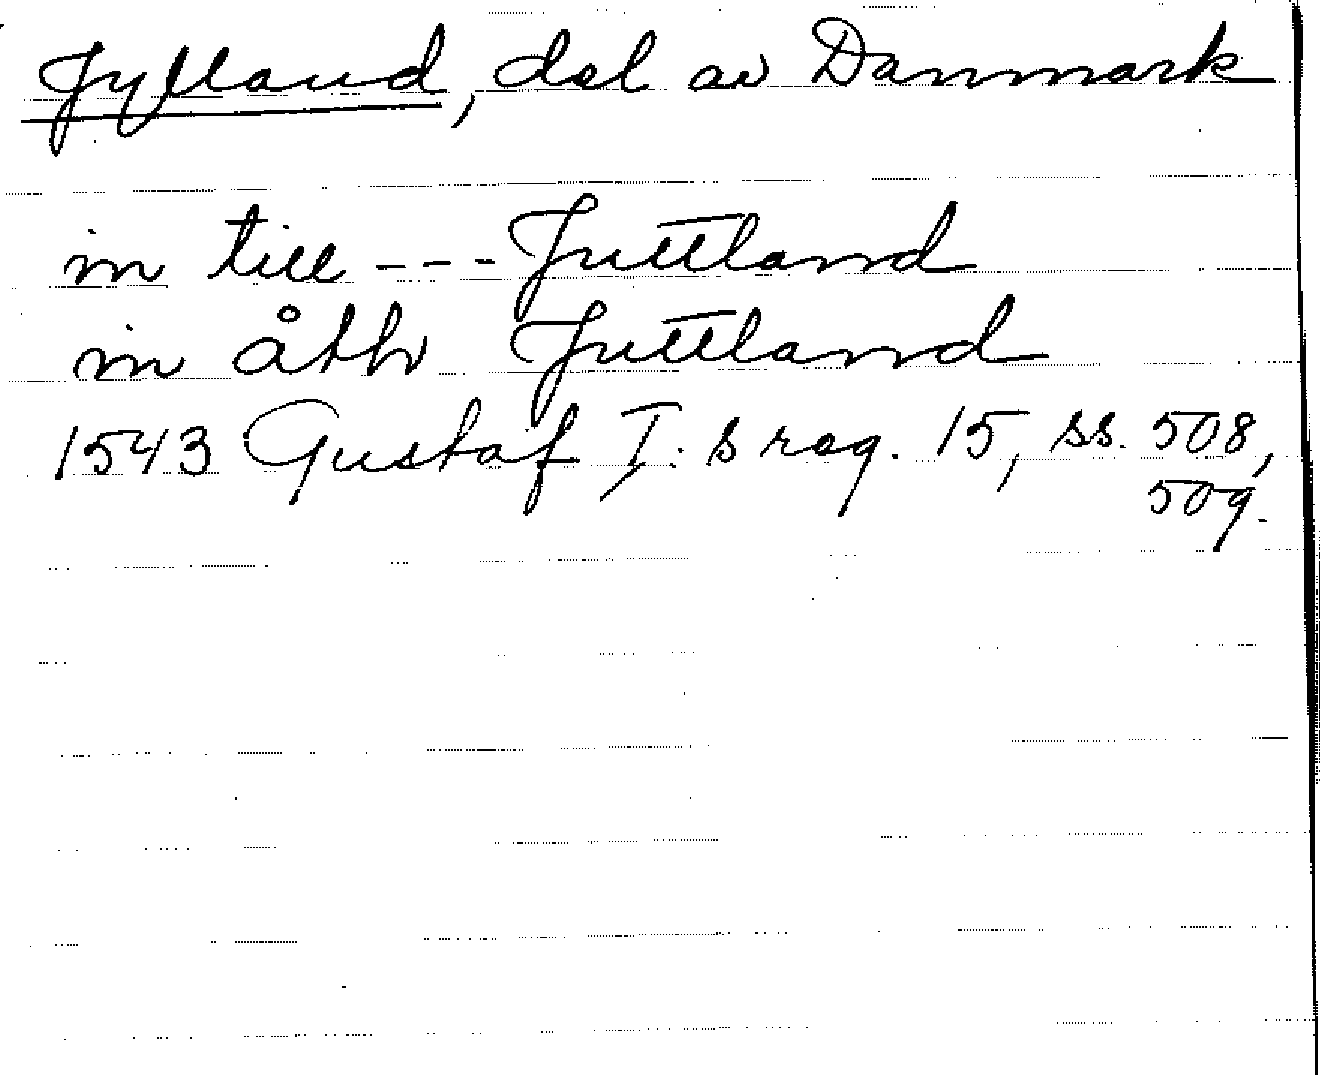 Jylland, del av Danmark
in till --- Juttland
in åth Juttland
1543 Gustaf I:s reg. 15, ss. 508,
509.